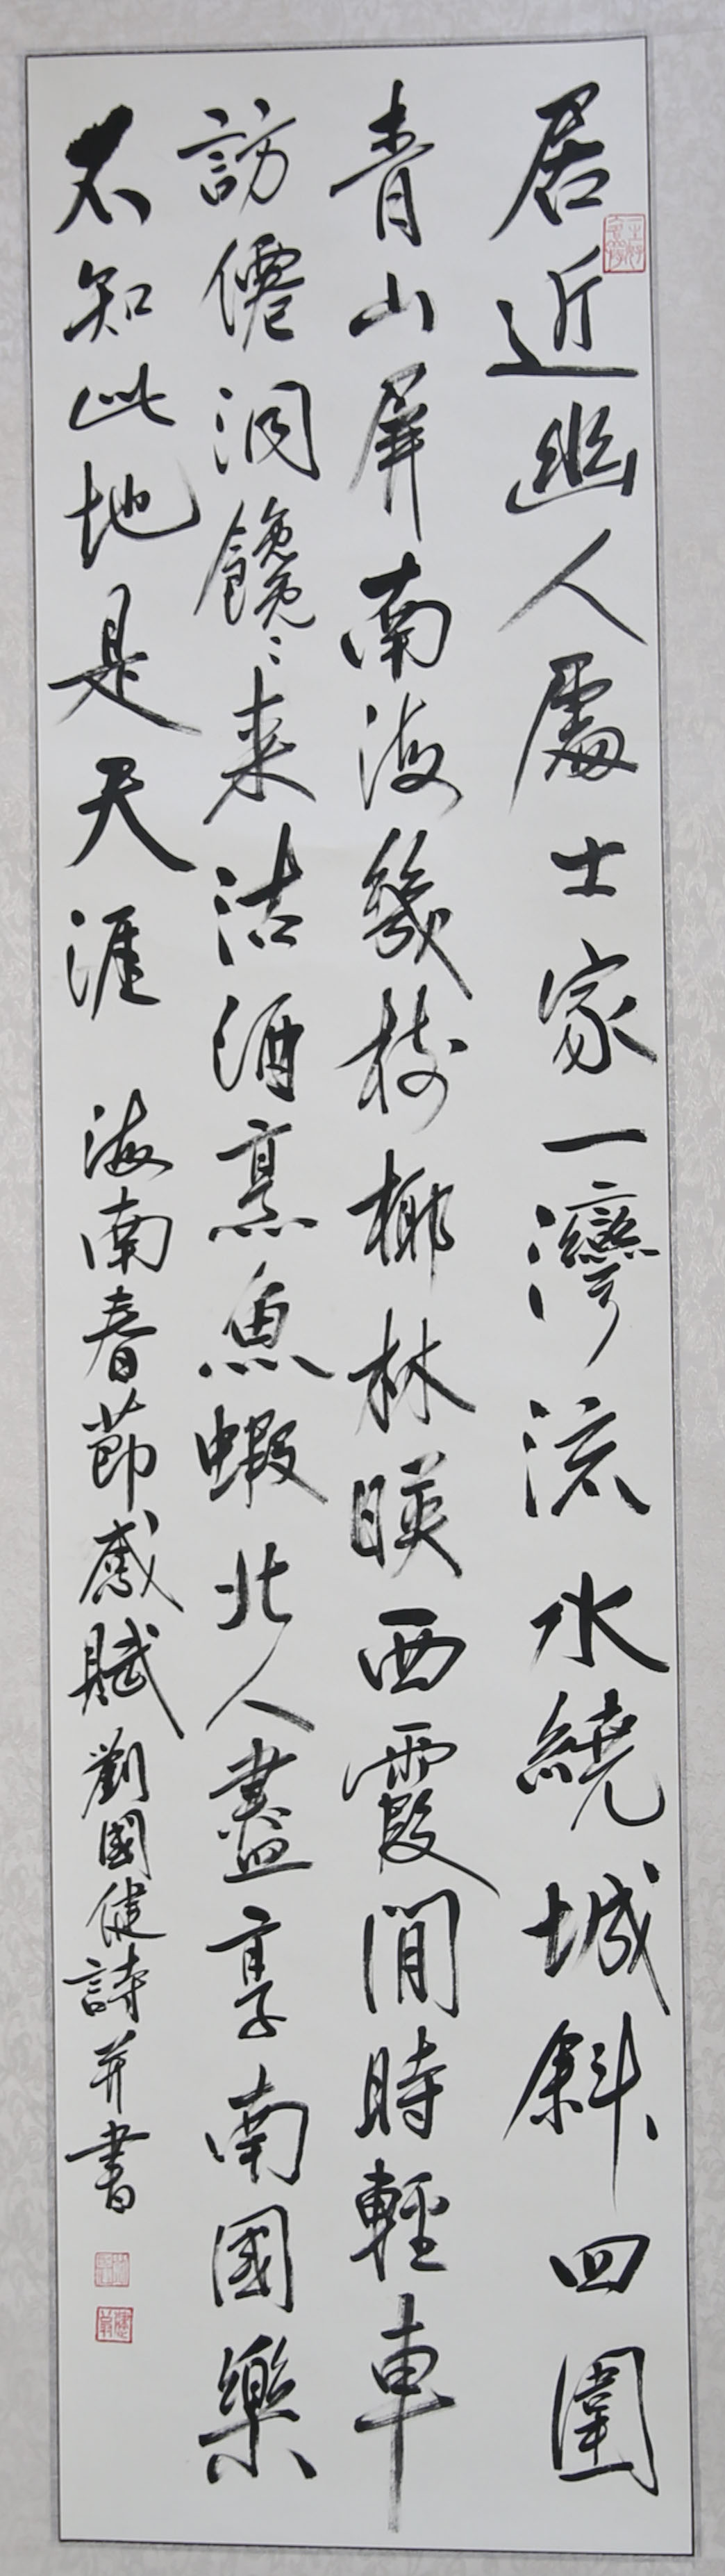 居近幽人處士家一灣流水繞城斜四圍
青山屏南海幾樹椰林映西霞閒時輕車
訪僊洞饞〻来沽酒烹魚蝦北人盡享南國樂
不知此地是天涯 海南春節感賦劉國健詩并書